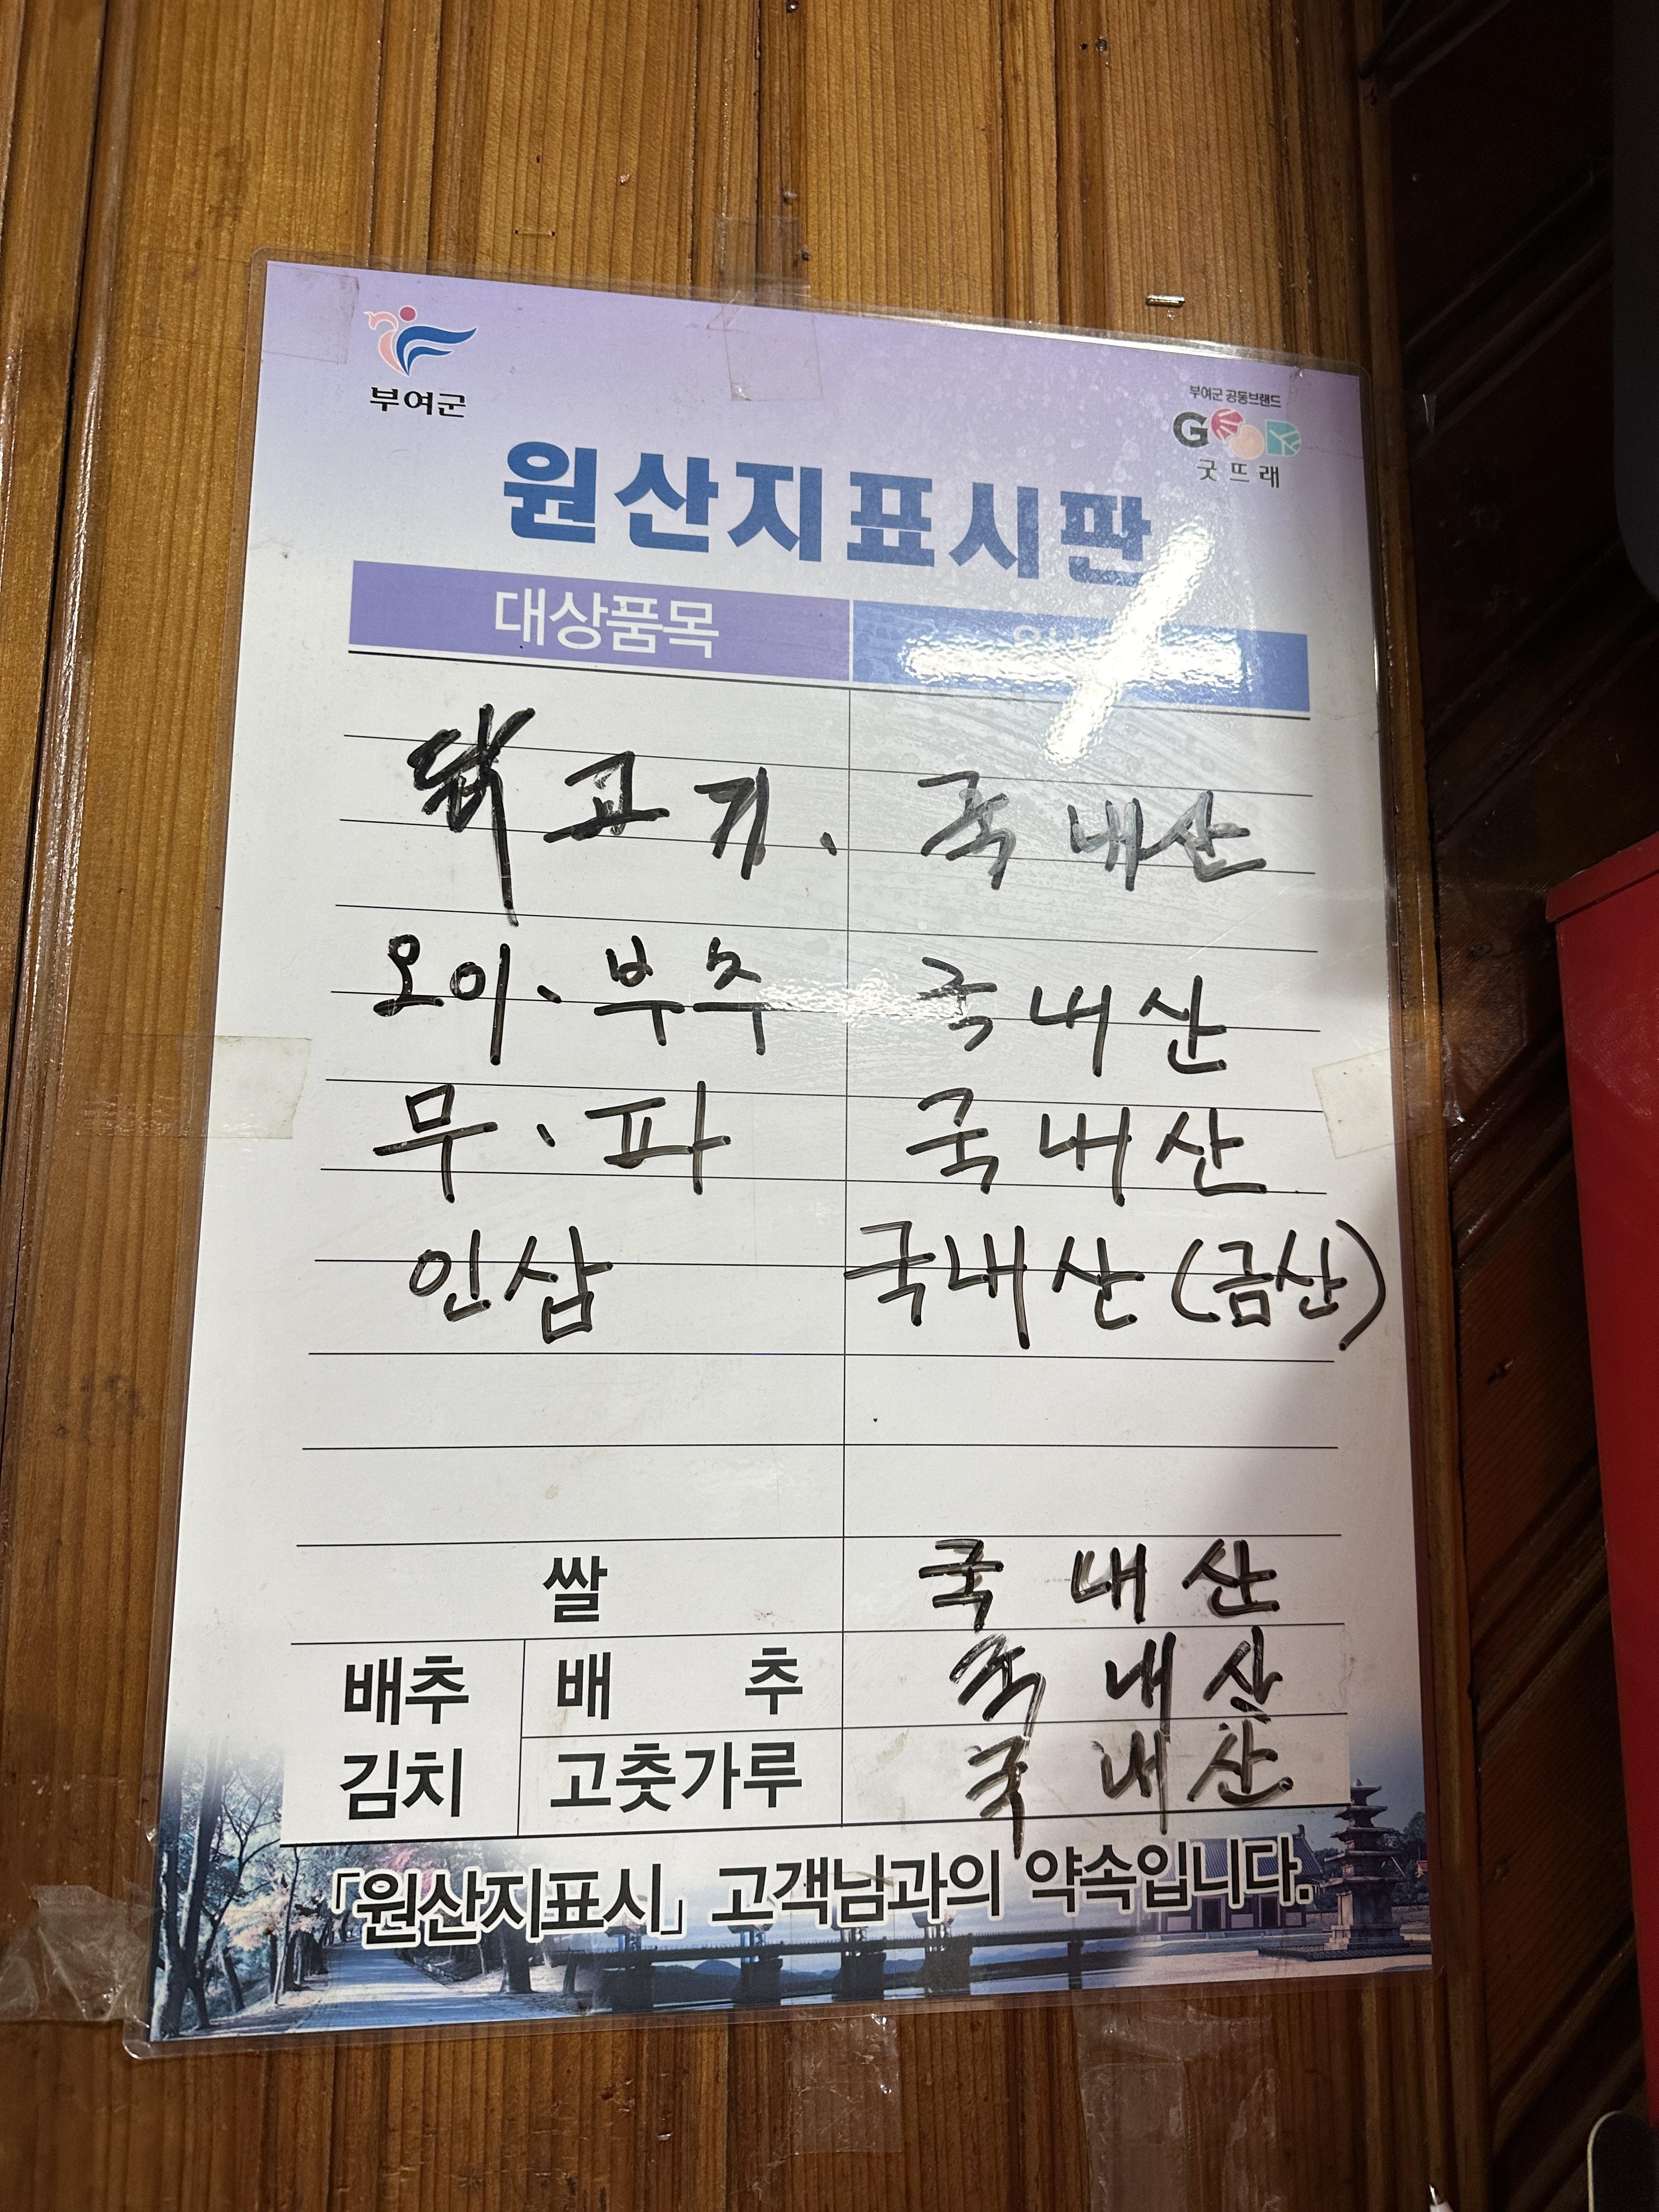 부여군
부여군 공동브랜드
GOOD
굿뜨래
원산지표시판
대상품목
고기. 국내산
오이、부추 국내산
무、파 국내산
인삼 국내산(금산)
쌀 국내산
배추 배 추 국내산
김치 고춧가루 국내산
「원산지표시」 고객님과의 약속입니다.